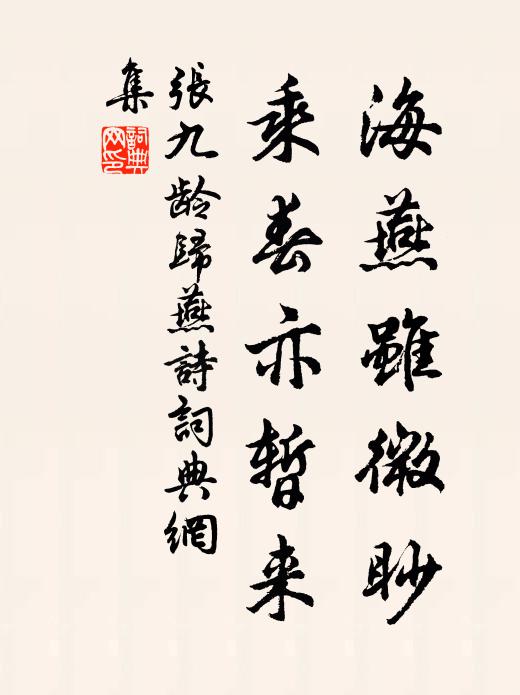 海燕雖微眇
乘春亦暫来
張九龄歸燕詩詞典網
集
詞典網印